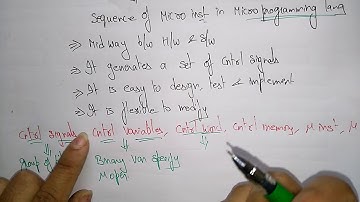 Sequence of Micro inst in Micro programming lang
⇒ Midway b/w H/w & S/w
⇒ It generates a set of Cntrl signals
⇒ It is easy to design, test & implement
⇒ It is flexible to modify
Cntrl signals, Cntrl Variables, Cntrl word, Cntrl memory, μ inst, μ
group of Binary Var specify
μ opert